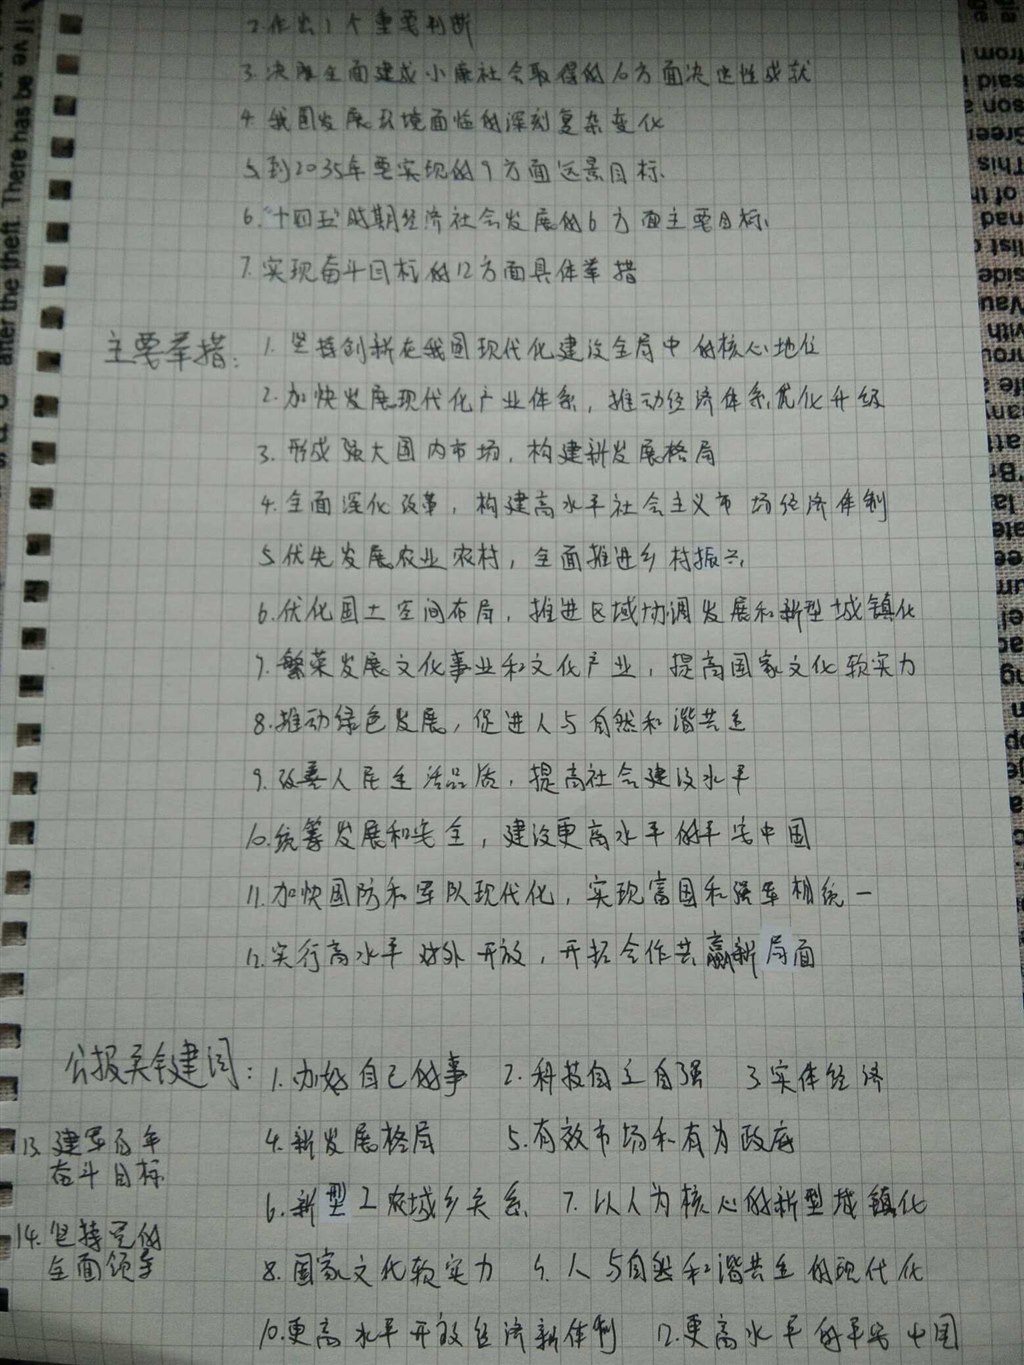 2.作出1个重要判断
3.决胜全面建成小康社会取得的10方面决定性成就
4.我国发展环境面临的深刻复杂变化
5.到2035年要实现的9方面远景目标
6."十四五"时期经济社会发展的6方面主要目标
7.实现奋斗目标的12方面具体举措
主要举措: 1.坚持创新在我国现代化建设全局中的核心地位
2.加快发展现代化产业体系,推动经济体系优化升级
3.形成强大国内市场,构建新发展格局
4.全面深化改革,构建高水平社会主义市场经济体制
5.优先发展农业农村,全面推进乡村振兴
6.优化国土空间布局,推进区域协调发展和新型城镇化
7.繁荣发展文化事业和文化产业,提高国家文化软实力
8.推动绿色发展,促进人与自然和谐共生
9.改善人民生活品质,提高社会建设水平
10.统筹发展和安全,建设更高水平的平安中国
11.加快国防和军队现代化,实现富国和强军相统一
12.实行高水平对外开放,开拓合作共赢新局面
公报关键词: 1.办好自己的事 2.科技自立自强 3.实体经济
4.新发展格局 5.有效市场和有为政府
13.建军百年
奋斗目标
6.新型工农城乡关系 7.以人为核心的新型城镇化
14.坚持党的
全面领导
8.国家文化软实力 9.人与自然和谐共生的现代化
10.更高水平开放经济新体制 12.更高水平的平安中国
after the theft. There has be